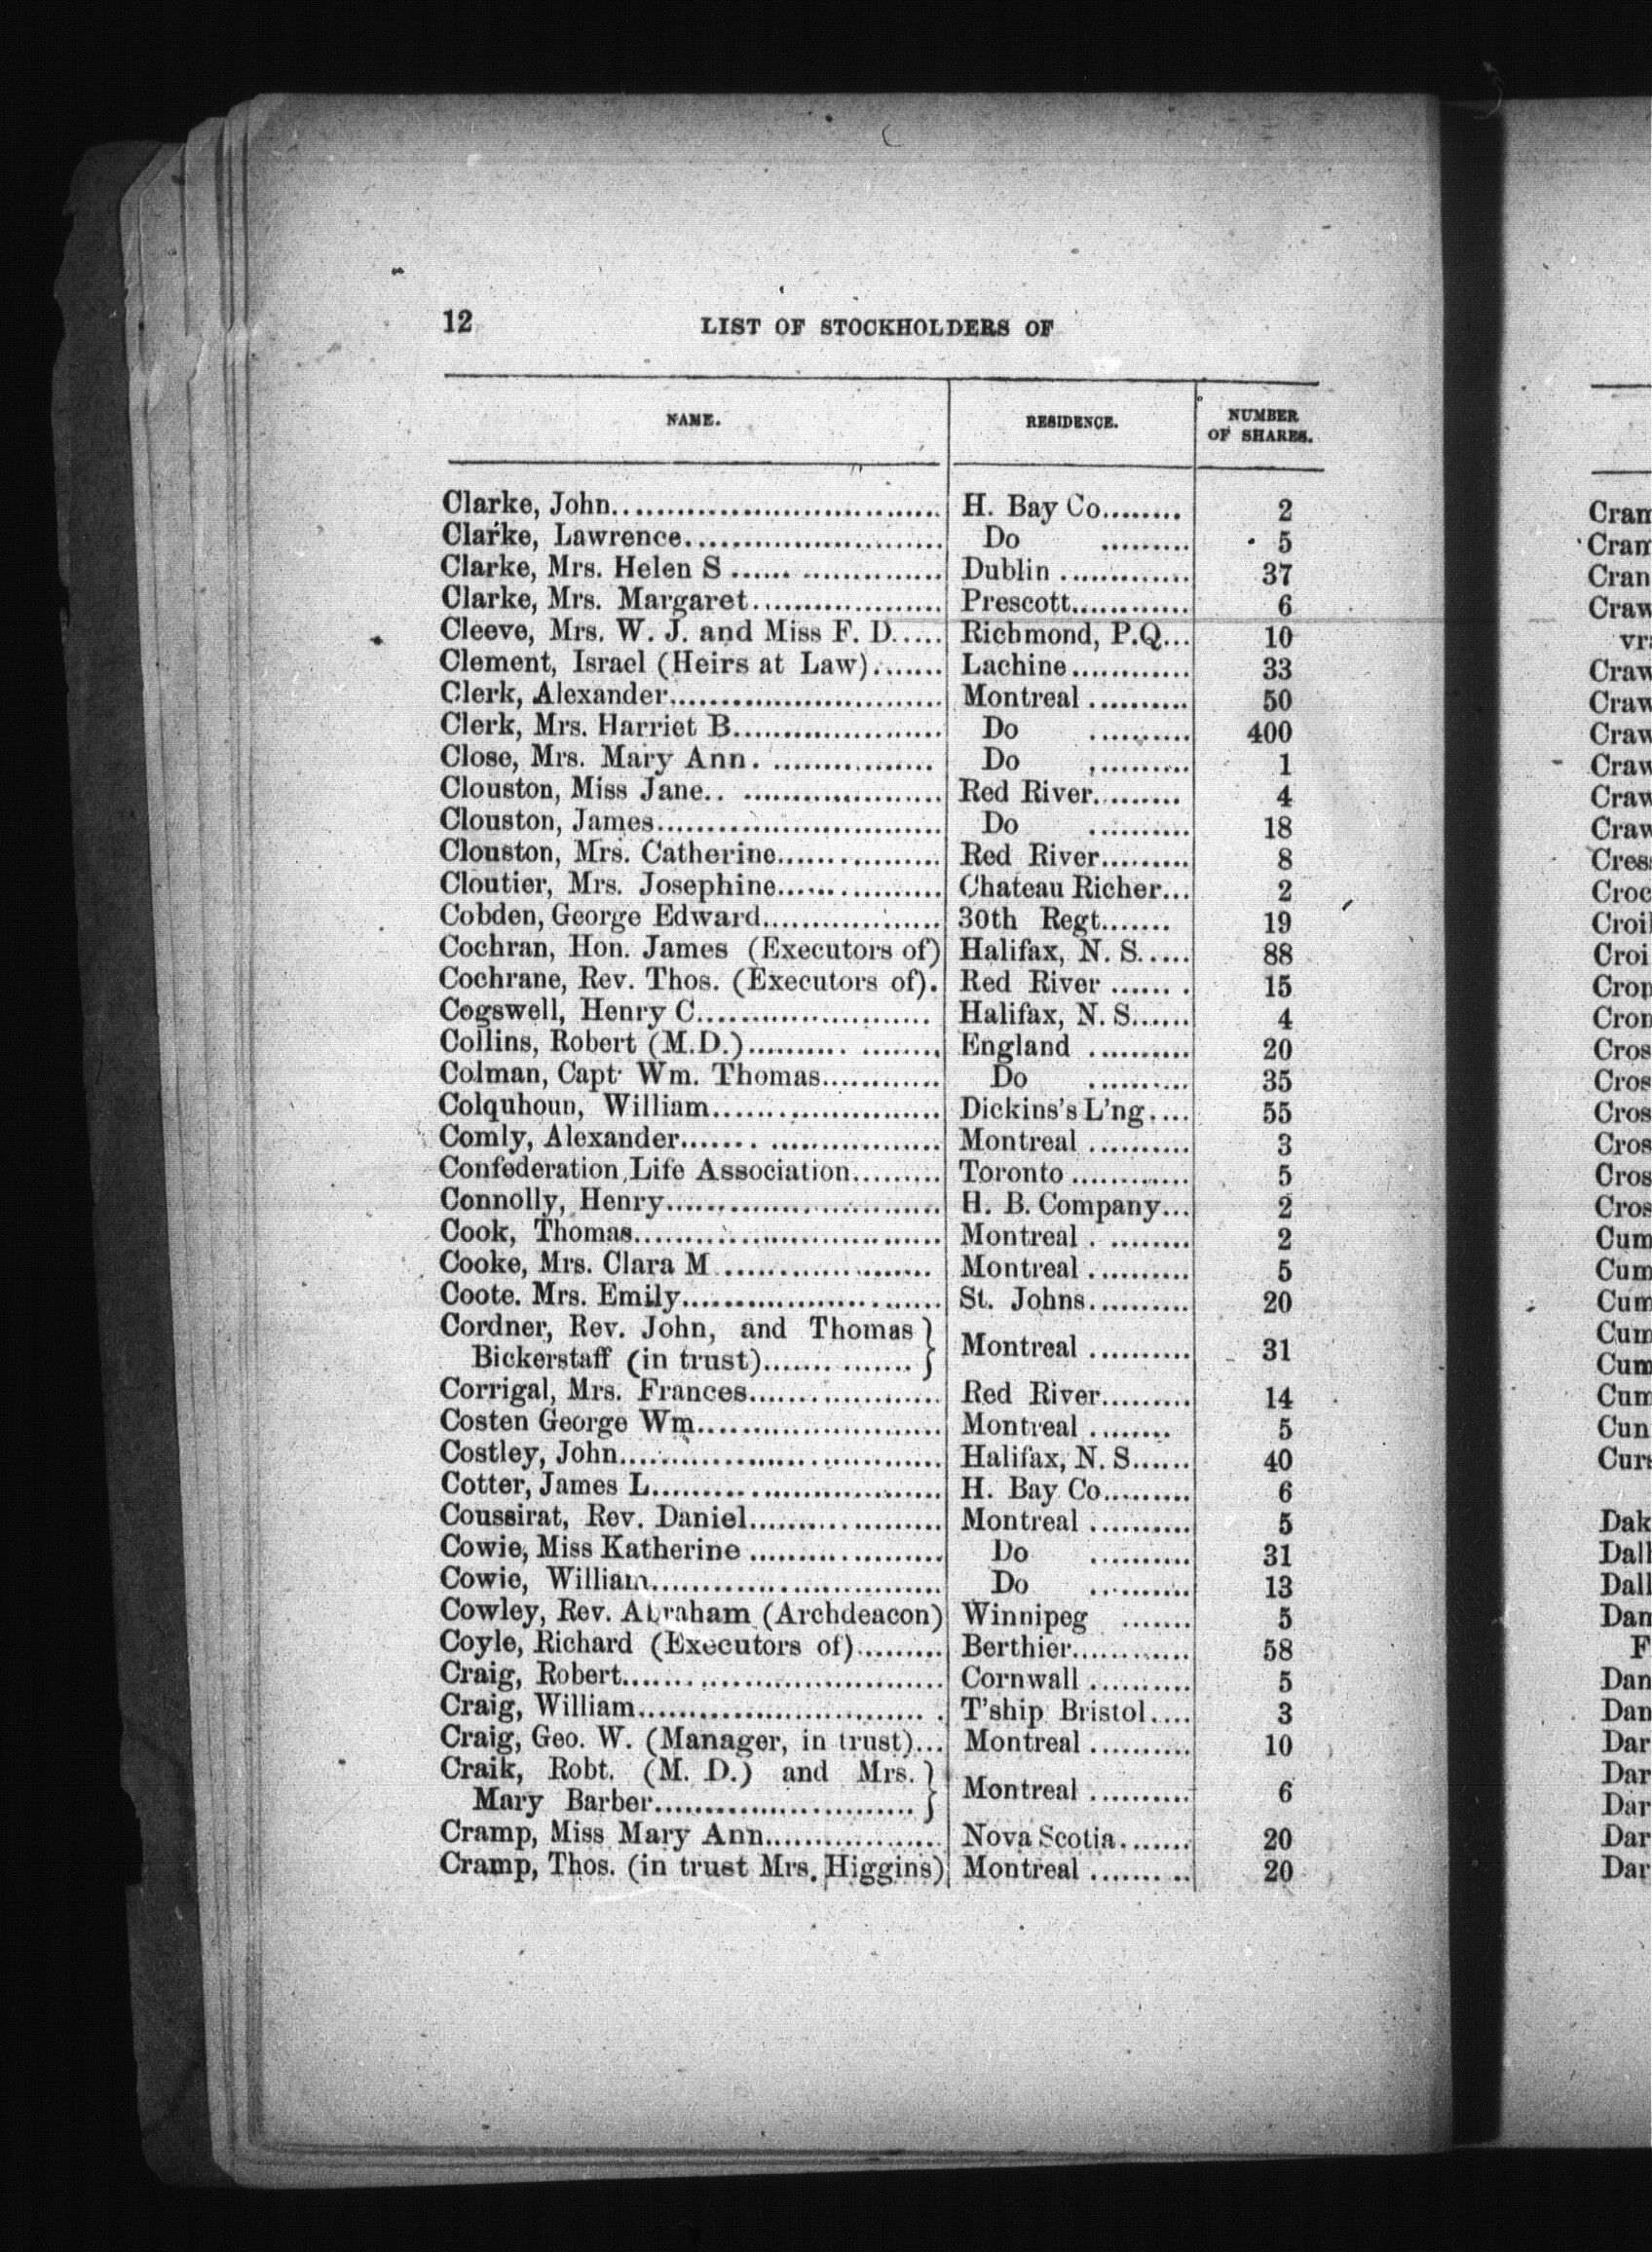 12 LIST OF STOCKHOLDERS OF
NAME. RESIDENCE. NUMBER OF SHARES.
Clarke, John.............................. H. Bay Co........ 2
Clarke, Lawrence.......................... Do ......... 5
Clarke, Mrs. Helen S ...... .............. Dublin ............. 37
Clarke, Mrs. Margaret................... Prescott............ 6
Cleeve, Mrs. W. J. and Miss F. D..... Richmond, P.Q... 10
Clement, Israel (Heirs at Law)....... Lachine............ 33
Clerk, Alexander........................... Montreal .......... 50
Clerk, Mrs. Harriet B..................... Do .......... 400
Close, Mrs. Mary Ann. ................ Do .......... 1
Clouston, Miss Jane.. .................... Red River......... 4
Clouston, James............................ Do .......... 18
Clouston, Mrs. Catherine................ Red River......... 8
Cloutier, Mrs. Josephine................ Chateau Richer... 2
Cobden, George Edward.................. 30th Regt....... 19
Cochran, Hon. James (Executors of) Halifax, N. S..... 88
Cochrane, Rev. Thos. (Executors of). Red River ...... . 15
Cogswell, Henry C....................... Halifax, N. S...... 4
Collins, Robert (M.D.).......... ........ England .......... 20
Colman, Capt. Wm. Thomas............ Do .......... 35
Colquhoun, William....................... Dickins's L'ng.... 55
Comly, Alexander....... ................. Montreal .......... 3
Confederation Life Association......... Toronto ............ 5
Connolly, Henry........................... H. B. Company... 2
Cook, Thomas.............................. Montreal . ........ 2
Cooke, Mrs. Clara M ..................... Montreal .......... 5
Coote. Mrs. Emily......................... St. Johns.......... 20
Cordner, Rev. John, and Thomas }
Bickerstaff (in trust)....... ....... } Montreal .......... 31
Corrigal, Mrs. Frances................... Red River......... 14
Costen George Wm........................ Montreal ........ 5
Costley, John................................ Halifax, N. S...... 40
Cotter, James L............................. H. Bay Co......... 6
Coussirat, Rev. Daniel................... Montreal .......... 5
Cowie, Miss Katherine ................... Do .......... 31
Cowie, William............................. Do .......... 13
Cowley, Rev. Abraham (Archdeacon) Winnipeg ....... 5
Coyle, Richard (Executors of)......... Berthier............ 58
Craig, Robert................................ Cornwall .......... 5
Craig, William............................ . T'ship Bristol.... 3
Craig, Geo. W. (Manager, in trust)... Montreal .......... 10
Craik, Robt. (M. D.) and Mrs. }
Mary Barber.......................... } Montreal .......... 6
Cramp, Miss Mary Ann.................. Nova Scotia....... 20
Cramp, Thos. (in trust Mrs. Higgins) Montreal ....... .. 20